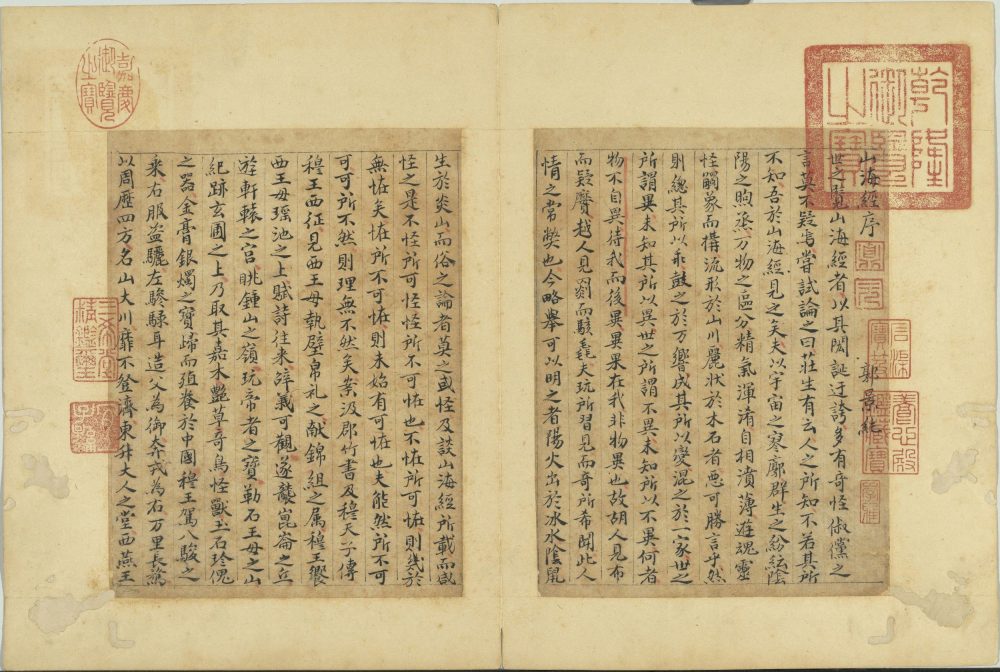 乾隆御覽之寶
山海經序
郭景純
世之覽山海經者以其閎誕迂誇多有奇怪俶儻之
言莫不疑焉嘗試論之曰莊生有云人之所知不若其所
不知吾於山海經見之矣夫以宇宙之寥廓群生之紛紜陰
陽之煦蒸万物之區分精氣渾淆自相濆薄遊魂靈
怪觸象而構流形於山川麗狀於木石者惡可勝言乎然
則總其所以乖鼓之於万響成其所以變混之於一家世之
所謂異未知其所以異世之所謂不異未知所以不異何者
物不自異待我而後異異果在我非物異也故胡人見布
而疑黂越人見罽而駭毳夫玩所習見而奇所希聞此人
情之常獘也今略舉可以明之者陽火出於冰水陰鼠
石渠寶笈
養心殿鑒藏寶
生於炎山而俗之論者莫之或怪及談山海經所載而咸
怪之是不怪所可怪怪所不可怪也不怪所可怪則幾於
無怪矣怪所不可怪則未始有可怪也夫能然所不可
可可所不然則理無不然矣案汲郡竹書及穆天子傳
穆王西征見西王母執璧帛礼之献錦組之属穆王饗
西王母瑶池之上賦詩往来辞義可觀遂襲崑崙之丘
遊軒轅之宮眺鍾山之嶺玩帝者之寶勒石王母之山
紀跡玄圃之上乃取其嘉木艷草奇鳥怪獸玉石珍傀
之器金膏銀燭之寶歸而殖養於中國穆王駕八駿之
乘右服盗驪左驂騄耳造父為御奔戎為右万里長騖
以周歷四方名山大川靡不登濟東升大人之堂西燕王
嘉慶御覽之寶